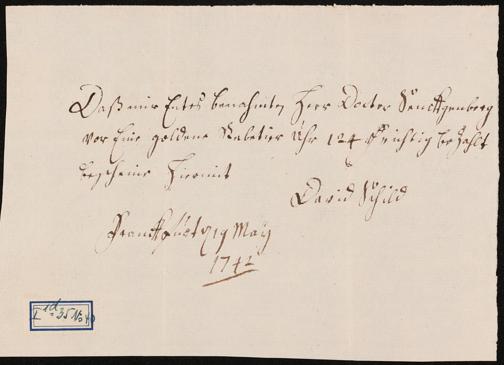 Daß mir Entes benahmten Herr Docter Senckgenberg
vor Eine goldene Rebetier Uhr 124 f richtig bezahlt
bescheine Hiermit
David Schild
Franckfurt 19 May
1742
I d 35 No 40